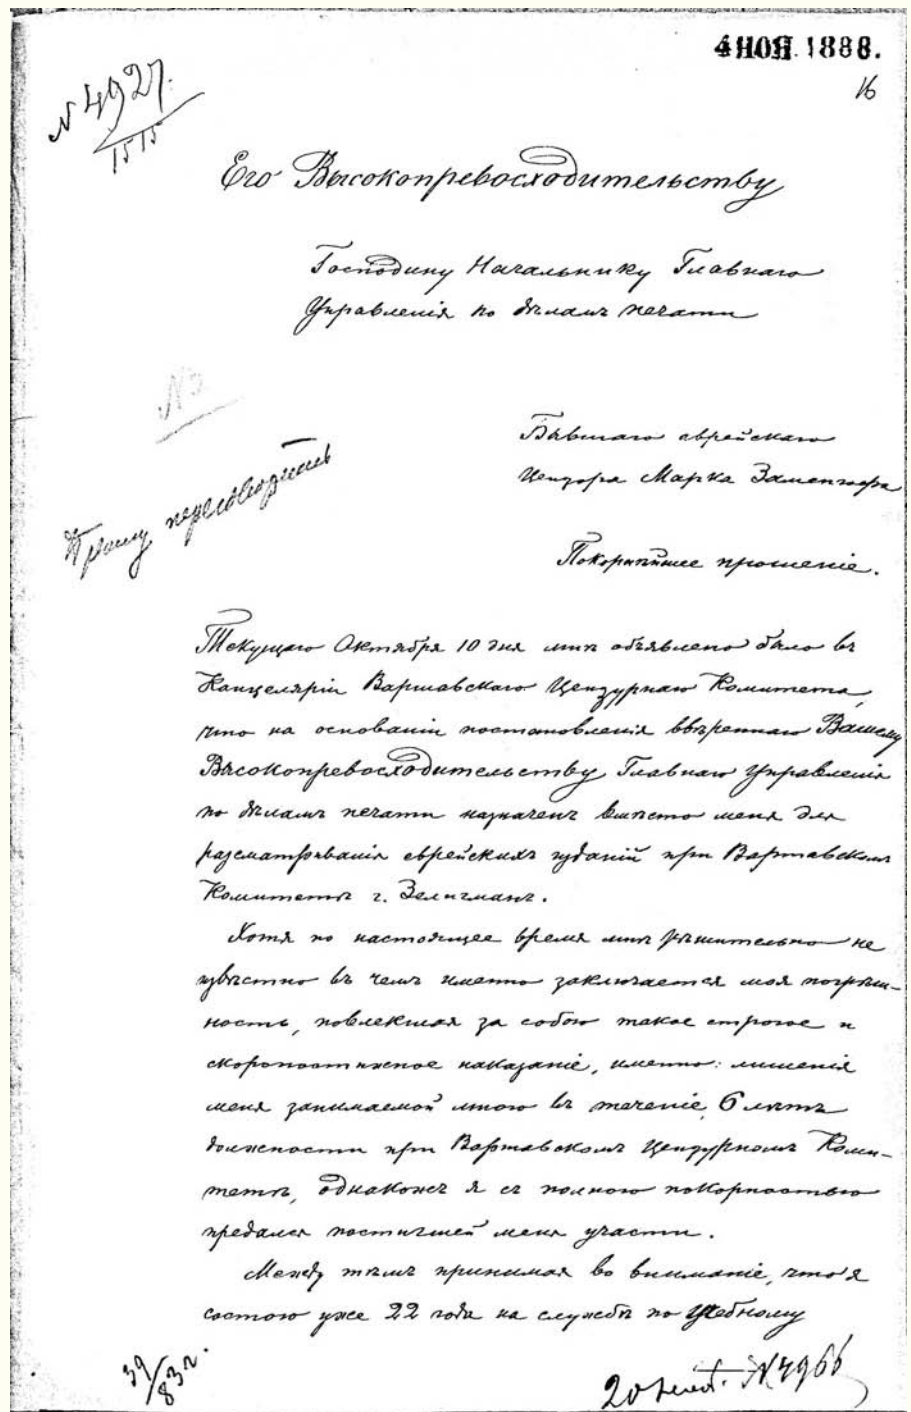 4 НОЯ. 1888.
16
№ 4927.
1515
Его Высокопревосходительству
Господину Начальнику Главнаго
Управленія по дѣламъ печати
№
Бывшаго еврейскаго
Цензора Марка Заменгофа
Прошу переговорить
Покорнѣйшее прошеніе.
Текущаго Октября 10 дня мнѣ объявлено было въ
Канцеляріи Варшавскаго Цензурнаго Комитета,
что на основаніи постановленія ввѣреннаго Вашему
Высокопревосходительству Главнаго Управленія
по дѣламъ печати назначенъ вмѣсто меня для
разсматриванія еврейскихъ изданій при Варшавскомъ
Комитетѣ г. Зелигманъ.
Хотя по настоящее время мнѣ рѣшительно не
извѣстно въ чемъ именно заключается моя погрѣш-
ность, повлекшая за собою такое строгое и
скоропостижное наказаніе, именно: лишенія
меня занимаемой мною въ теченіе 6 лѣтъ
должности при Варшавскомъ Цензурномъ Коми-
тетѣ, однакожъ я съ полною покорностью
предался постигшей меня участи.
Между тѣмъ принимая во вниманіе, что я
состою уже 22 года на службѣ по Учебному
39/83 г.
20 № 4966